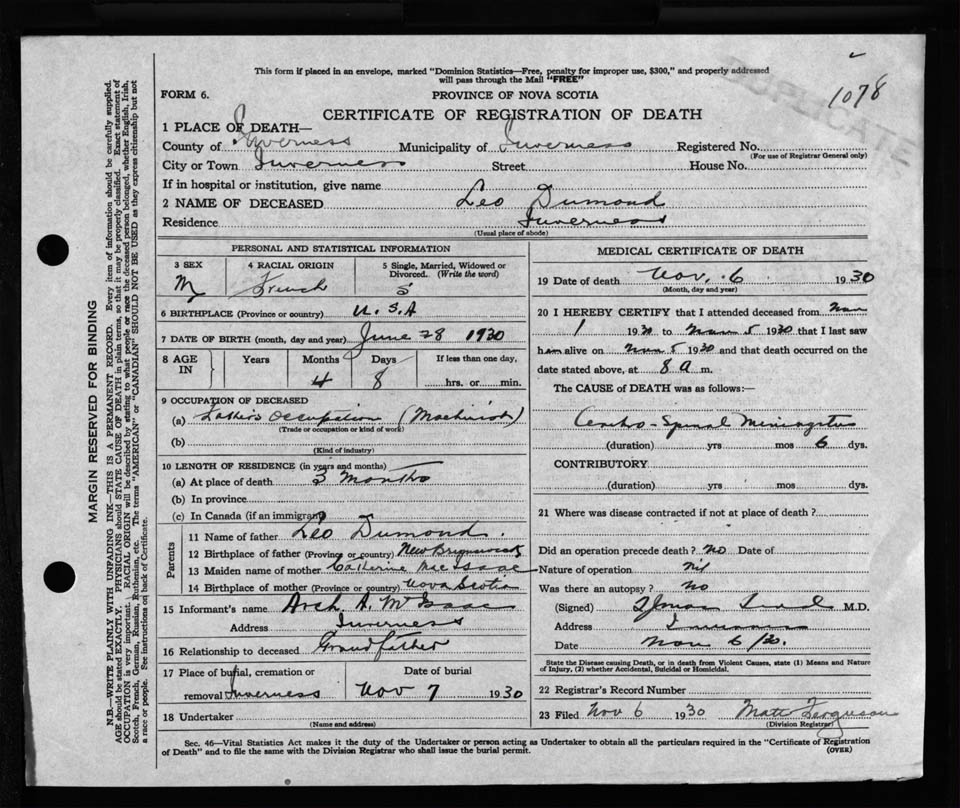 This form if placed in an envelope, marked "Dominion Statistics—Free, penalty for improper use, $300," and properly addressed
will pass through the Mail "FREE"
DUPLICATE
1078
FORM 6.
PROVINCE OF NOVA SCOTIA
CERTIFICATE OF REGISTRATION OF DEATH
1 PLACE OF DEATH—
County of Inverness Municipality of Inverness Registered No.
(For use of Registrar General only)
City or Town Inverness Street House No.
If in hospital or institution, give name
2 NAME OF DECEASED Leo Dumond
Residence Inverness
(Usual place of abode)
PERSONAL AND STATISTICAL INFORMATION
3 SEX 4 RACIAL ORIGIN 5 Single, Married, Widowed or Divorced. (Write the word)
M French S
6 BIRTHPLACE (Province or country) U.S.A
7 DATE OF BIRTH (month, day and year) June 28 1930
8 AGE IN Years Months Days If less than one day,
4 8 hrs. or min.
9 OCCUPATION OF DECEASED
(a) Father's Occupation (Machinist)
(Trade or occupation or kind of work)
(b)
(Kind of industry)
10 LENGTH OF RESIDENCE (in years and months)
(a) At place of death 3 Months
(b) In province
(c) In Canada (if an immigrant)
Parents
11 Name of father Leo Dumond
12 Birthplace of father (Province or country) New Brunswick
13 Maiden name of mother Catherine MacIsaac
14 Birthplace of mother (Province or country) Nova Scotia
15 Informant's name Arch A. McIsaac
Address Inverness
16 Relationship to deceased Grandfather
17 Place of burial, cremation or Date of burial
removal Inverness Nov 7 1930
18 Undertaker
(Name and address)
MEDICAL CERTIFICATE OF DEATH
19 Date of death Nov. 6 1930
(Month, day and year)
20 I HEREBY CERTIFY that I attended deceased from Nov
1 1930 to Nov 5 1930 that I last saw
him alive on Nov 5 1930 and that death occurred on the
date stated above, at 8 a m.
The CAUSE of DEATH was as follows:—
Cerebro-Spinal Meningitis
(duration) yrs mos 6 dys.
CONTRIBUTORY
(duration) yrs. mos. dys.
21 Where was disease contracted if not at place of death?
Did an operation precede death? no Date of
Nature of operation nil
Was there an autopsy? no
(Signed) M.D.
Address Inverness
Date Nov 6/30.
State the Disease causing Death, or in death from Violent Causes, state (1) Means and Nature
of Injury, (2) whether Accidental, Suicidal or Homicidal.
22 Registrar's Record Number
23 Filed Nov 6 1930 Matt Ferguson
(Division Registrar)
Sec. 46—Vital Statistics Act makes it the duty of the Undertaker or person acting as Undertaker to obtain all the particulars required in the "Certificate of Registration
of Death" and to file the same with the Division Registrar who shall issue the burial permit. (OVER)
MARGIN RESERVED FOR BINDING
N.B.—WRITE PLAINLY WITH UNFADING INK—THIS IS A PERMANENT RECORD. Every item of information should be carefully supplied.
AGE should be stated EXACTLY. PHYSICIANS should STATE CAUSE OF DEATH in plain terms, so that it may be properly classified. Exact statement of
OCCUPATION is very important. RACIAL ORIGIN will be described by stating to what people or race the deceased person belonged, whether English, Irish,
Scotch, French, German, Russian, Ruthenian, etc. The terms "AMERICAN" or "CANADIAN" SHOULD NOT BE USED as they express citizenship but not
a race or people. See instructions on back of Certificate.